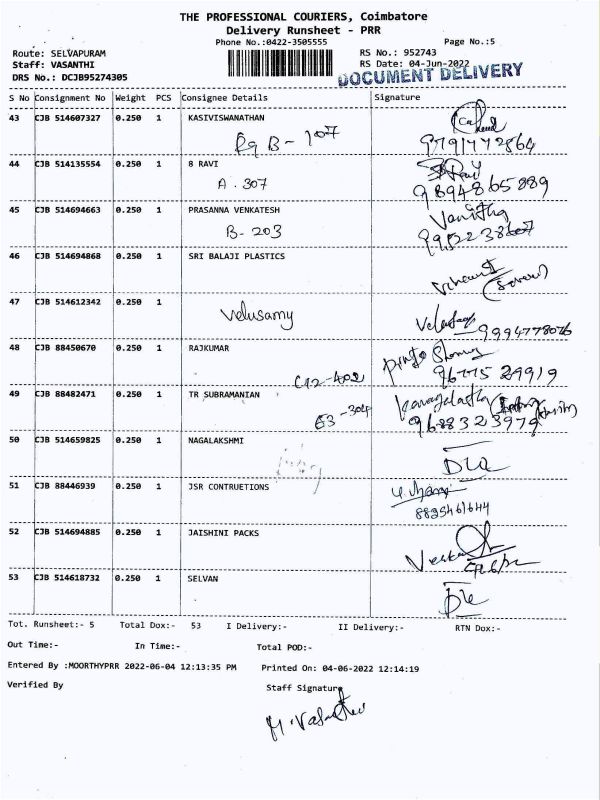 THE PROFESSIONAL COURIERS, Coimbatore
Delivery Runsheet - PRR
Phone No.:0422-3505555 Page No.:5
Route: SELVAPURAM RS No.: 952743
Staff: VASANTHI RS Date: 04-Jun-2022
DRS No.: DCJB95274305 DOCUMENT DELIVERY
S No Consignment No Weight PCS Consignee Details Signature
43 CJB 514607327 0.250 1 KASIVISWANATHAN
B-107 9791772864
44 CJB 514135554 0.250 1 8 RAVI Ravi
A.307 9894865889
45 CJB 514694663 0.250 1 PRASANNA VENKATESH Vanitha
B-203
46 CJB 514694868 0.250 1 SRI BALAJI PLASTICS
47 CJB 514612342 0.250 1
Velusamy 9994778076
48 CJB 88450670 0.250 1 RAJKUMAR
C12-402 9677529919
49 CJB 88482471 0.250 1 TR SUBRAMANIAN
E3-304 9688323979
50 CJB 514659825 0.250 1 NAGALAKSHMI
51 CJB 88446939 0.250 1 JSR CONTRUETIONS
8825461644
52 CJB 514694885 0.250 1 JAISHINI PACKS
53 CJB 514618732 0.250 1 SELVAN
Tot. Runsheet:- 5 Total Dox:- 53 I Delivery:- II Delivery:- RTN Dox:-
Out Time:- In Time:- Total POD:-
Entered By :MOORTHYPRR 2022-06-04 12:13:35 PM Printed On: 04-06-2022 12:14:19
Verified By Staff Signature